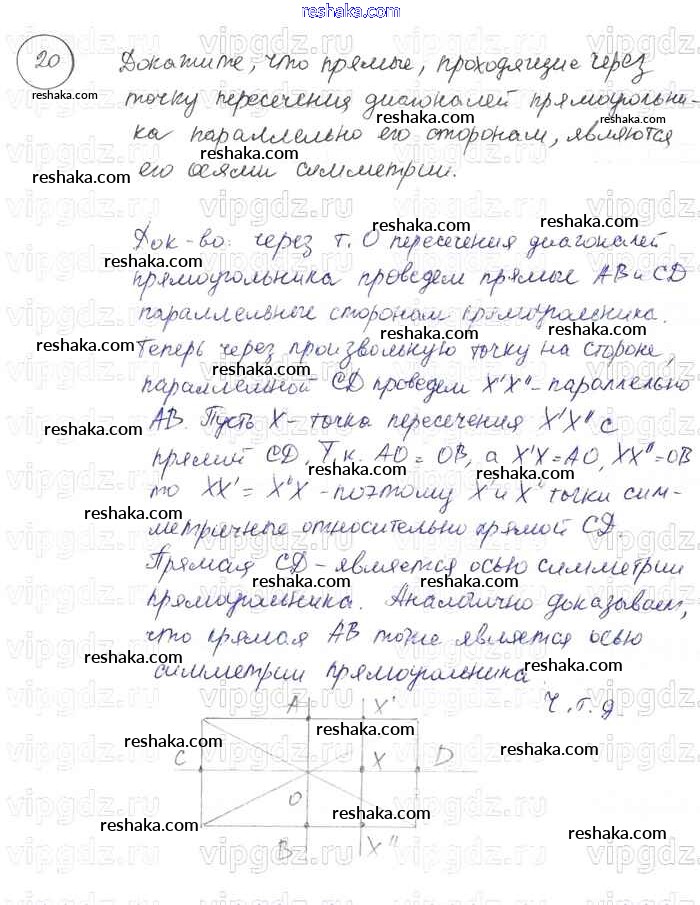 reshaka.com
20
Докажите, что прямые, проходящие через
точку пересечения диагоналей прямоугольни-
ка параллельно его сторонам, являются
его осями симметрии.
Док-во: через т. О пересечения диагоналей
прямоугольника проведем прямые АВ и CD
параллельные сторонам прямоугольника.
Теперь через произвольную точку на стороне,
параллельной CD проведем X'X''-параллельно
АВ. Пусть X - точка пересечения X'X'' с
прямой CD. Т.к. АО = ОВ, а X'X = АО, XX'' = ОВ
то XX' = X''X - поэтому X' и X'' точки сим-
метричные относительно прямой CD.
Прямая CD - является осью симметрии
прямоугольника. Аналогично доказываем,
что прямая АВ тоже является осью
симметрии прямоугольника
Ч.т.д
A X'
C X D
O
B X''